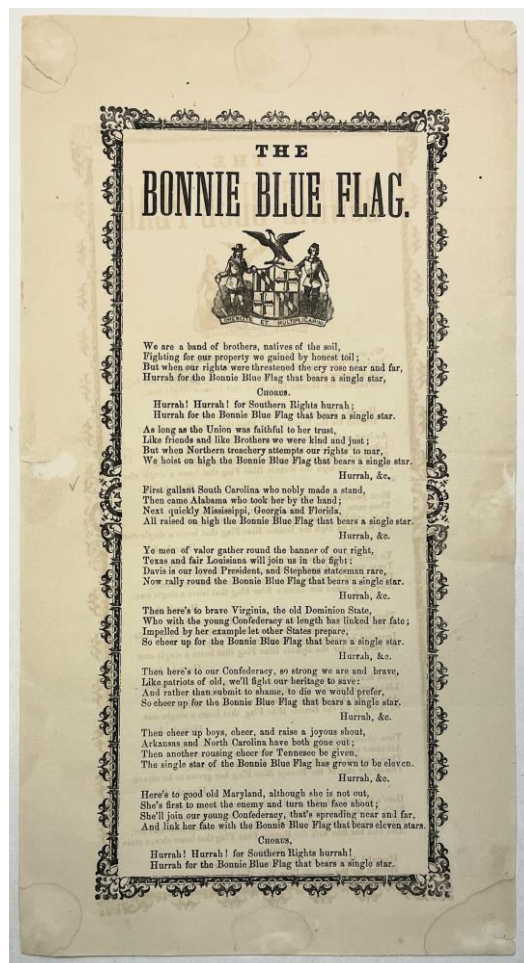 THE
BONNIE BLUE FLAG.
CRESCITE ET MULTIPLICAMINI
We are a band of brothers, natives of the soil,
Fighting for our property we gained by honest toil;
But when our rights were threatened the cry rose near and far,
Hurrah for the Bonnie Blue Flag that bears a single star,
CHORUS.
Hurrah! Hurrah! for Southern Rights hurrah;
Hurrah for the Bonnie Blue Flag that bears a single star.
As long as the Union was faithful to her trust,
Like friends and like Brothers we were kind and just;
But when Northern treachery attempts our rights to mar,
We hoist on high the Bonnie Blue Flag that bears a single star.
Hurrah, &c.
First gallant South Carolina who nobly made a stand,
Then came Alabama who took her by the hand;
Next quickly Mississippi, Georgia and Florida,
All raised on high the Bonnie Blue Flag that bears a single star.
Hurrah, &c.
Ye men of valor gather round the banner of our right,
Texas and fair Louisiana will join us in the fight;
Davis is our loved President, and Stephens statesman rare,
Now rally round the Bonnie Blue Flag that bears a single star.
Hurrah, &c.
Then here's to brave Virginia, the old Dominion State,
Who with the young Confederacy at length has linked her fate;
Impelled by her example let other States prepare,
So cheer up for the Bonnie Blue Flag that bears a single star.
Hurrah, &c.
Then here's to our Confederacy, so strong we are and brave,
Like patriots of old, we'll fight our heritage to save:
And rather than submit to shame, to die we would prefer,
So cheer up for the Bonnie Blue Flag that bears a single star.
Hurrah, &c.
Then cheer up boys, cheer, and raise a joyous shout,
Arkansas and North Carolina have both gone out;
Then another rousing cheer for Tennesee be given,
The single star of the Bonnie Blue Flag has grown to be eleven.
Hurrah, &c.
Here's to good old Maryland, although she is not out,
She's first to meet the enemy and turn them face about;
She'll join our young Confederacy, that's spreading near and far,
And link her fate with the Bonnie Blue Flag that bears eleven stars.
CHORUS,
Hurrah! Hurrah! for Southern Rights hurrah!
Hurrah for the Bonnie Blue Flag that bears a single star.